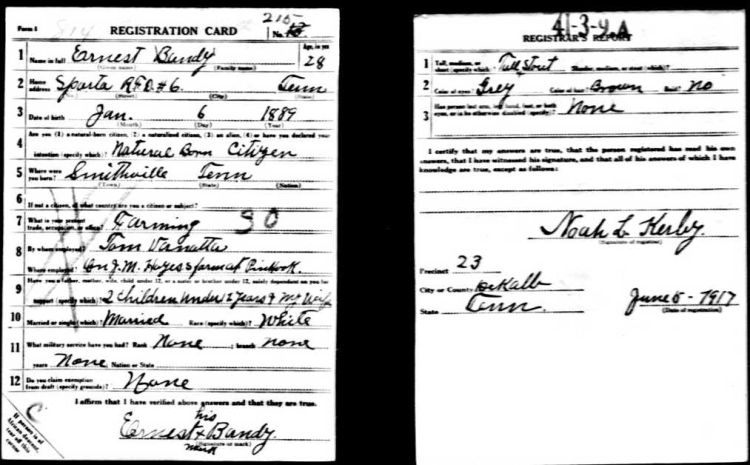 Form 1
REGISTRATION CARD
No.
215
1 Name in full Ernest Bandy
(Given name) (Family name)
Age, in yrs
28
2 Home address Sparta RFD #6 Tenn
(No.) (Street) (City) (State)
3 Date of birth Jan. 6 1889
(Month) (Day) (Year)
4 Are you (1) a natural-born citizen, (2) a naturalized citizen, (3) an alien, (4) or have you declared your
intention (specify which)? Natural Born Citizen
5 Where were you born? Smithville Tenn
(Town) (State) (Nation)
6 If not a citizen, of what country are you a citizen or subject?
7 What is your present trade, occupation, or office? Farming 30
8 By whom employed? Tom Vanatta
Where employed? On J. M. Hayes's farm at
9 Have you a father, mother, wife, child under 12, or a sister or brother under 12, solely dependent on you for
support (specify which)? 2 children under 12 years & My Wife
10 Married or single (which)? Married Race (specify which)? White
11 What military service have you had? Rank None ; branch none
years None Nation or State
12 Do you claim exemption from draft (specify grounds)? None
I affirm that I have verified above answers and that they are true.
his
Ernest x Bandy.
mark
(Signature or mark)
If person is of
African descent,
tear off this
corner
C.
41-3-9.A
REGISTRAR'S REPORT
1 Tall, medium, or short (specify which)? Tall Stout Slender, medium, or stout (which)?
2 Color of eyes? Grey Color of hair? Brown Bald? No
3 Has person lost arm, leg, hand, foot, or both eyes, or is he otherwise disabled (specify)? None
I certify that my answers are true, that the person registered has read his own
answers, that I have witnessed his signature, and that all of his answers of which I have
knowledge are true, except as follows:
Noah L Kerby.
(Signature of registrar)
Precinct 23
City or County DeKalb
State Tenn.
June 5 - 1917
(Date of registration)